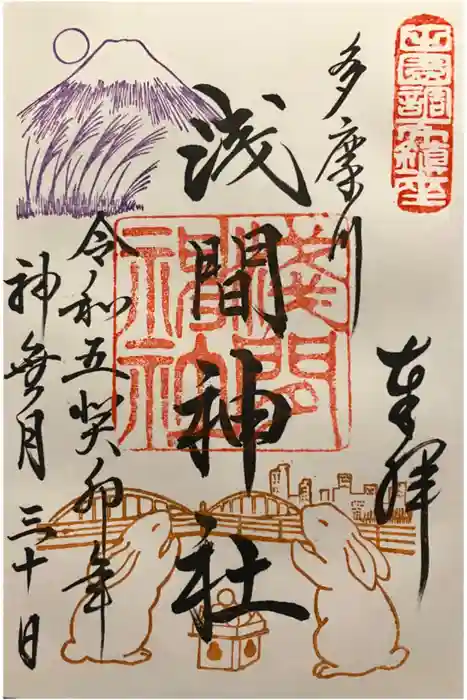 田園調布鎮坐
奉拝
多摩川
浅間神社
浅間
神社
令和五癸卯年
神無月 三十日